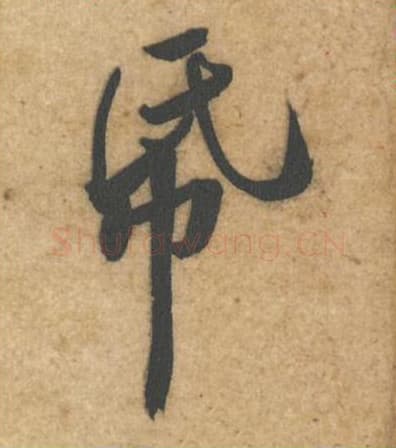 帋
Shufawang.CN